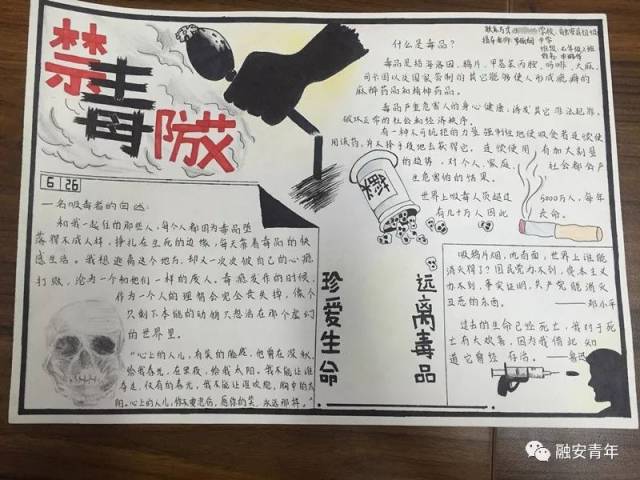 禁毒
什么是毒品？
毒品是指海洛因、鸦片、甲基苯丙胺、吗啡、大麻、
可卡因以及国家管制的其它能够使人形成瘾癖的
麻醉药品和精神药品。
毒品严重危害人的身心健康，诱发其它违法犯罪，
破坏正常的社会和经济秩序。
有一种不可抗拒的力量强制性地使吸食者连续使
用该药，并
地去获得它，连续使用有加大剂量
的趋势，对个人、家庭、社会都会产
生危害的结果。
世界上吸毒人员超过5000万人，每年
有几十万人因此丧命。
6 26
一名吸毒者的自述：
和我一起住的那些人，每个人都因为毒品堕
落得不成人样，挣扎在生死的边缘，每天靠着毒品的快
感生活。我想逃离这个地方，却又一次次被自己的心瘾
打败，沦为一个和他们一样的废人。毒瘾发作的时候，
作为一个人的理智会完全丧失掉，像个
只剩下本能的动物只想活在那个虚幻
的世界里。
“心上的人儿，有笑的脸庞，他曾在深秋，
给我春光，在黑夜，给我太阳。我不能让谁
夺走，仅有的春光，我不能让谁吹熄，胸中的太
阳。心上的人儿，你不要悲伤，愿你的笑，永远那样。”
珍爱生命
远离毒品
吸鸦片烟，
世界上谁能
消灭得了？国民党力不到，资本主义
力不到，事实证明，共产党能消灭
丑恶的东西。
——邓小平
过去的生命已经死亡，我对于死
亡有大欢喜，因为借此知
道它曾经存活。——鲁迅
融安青年